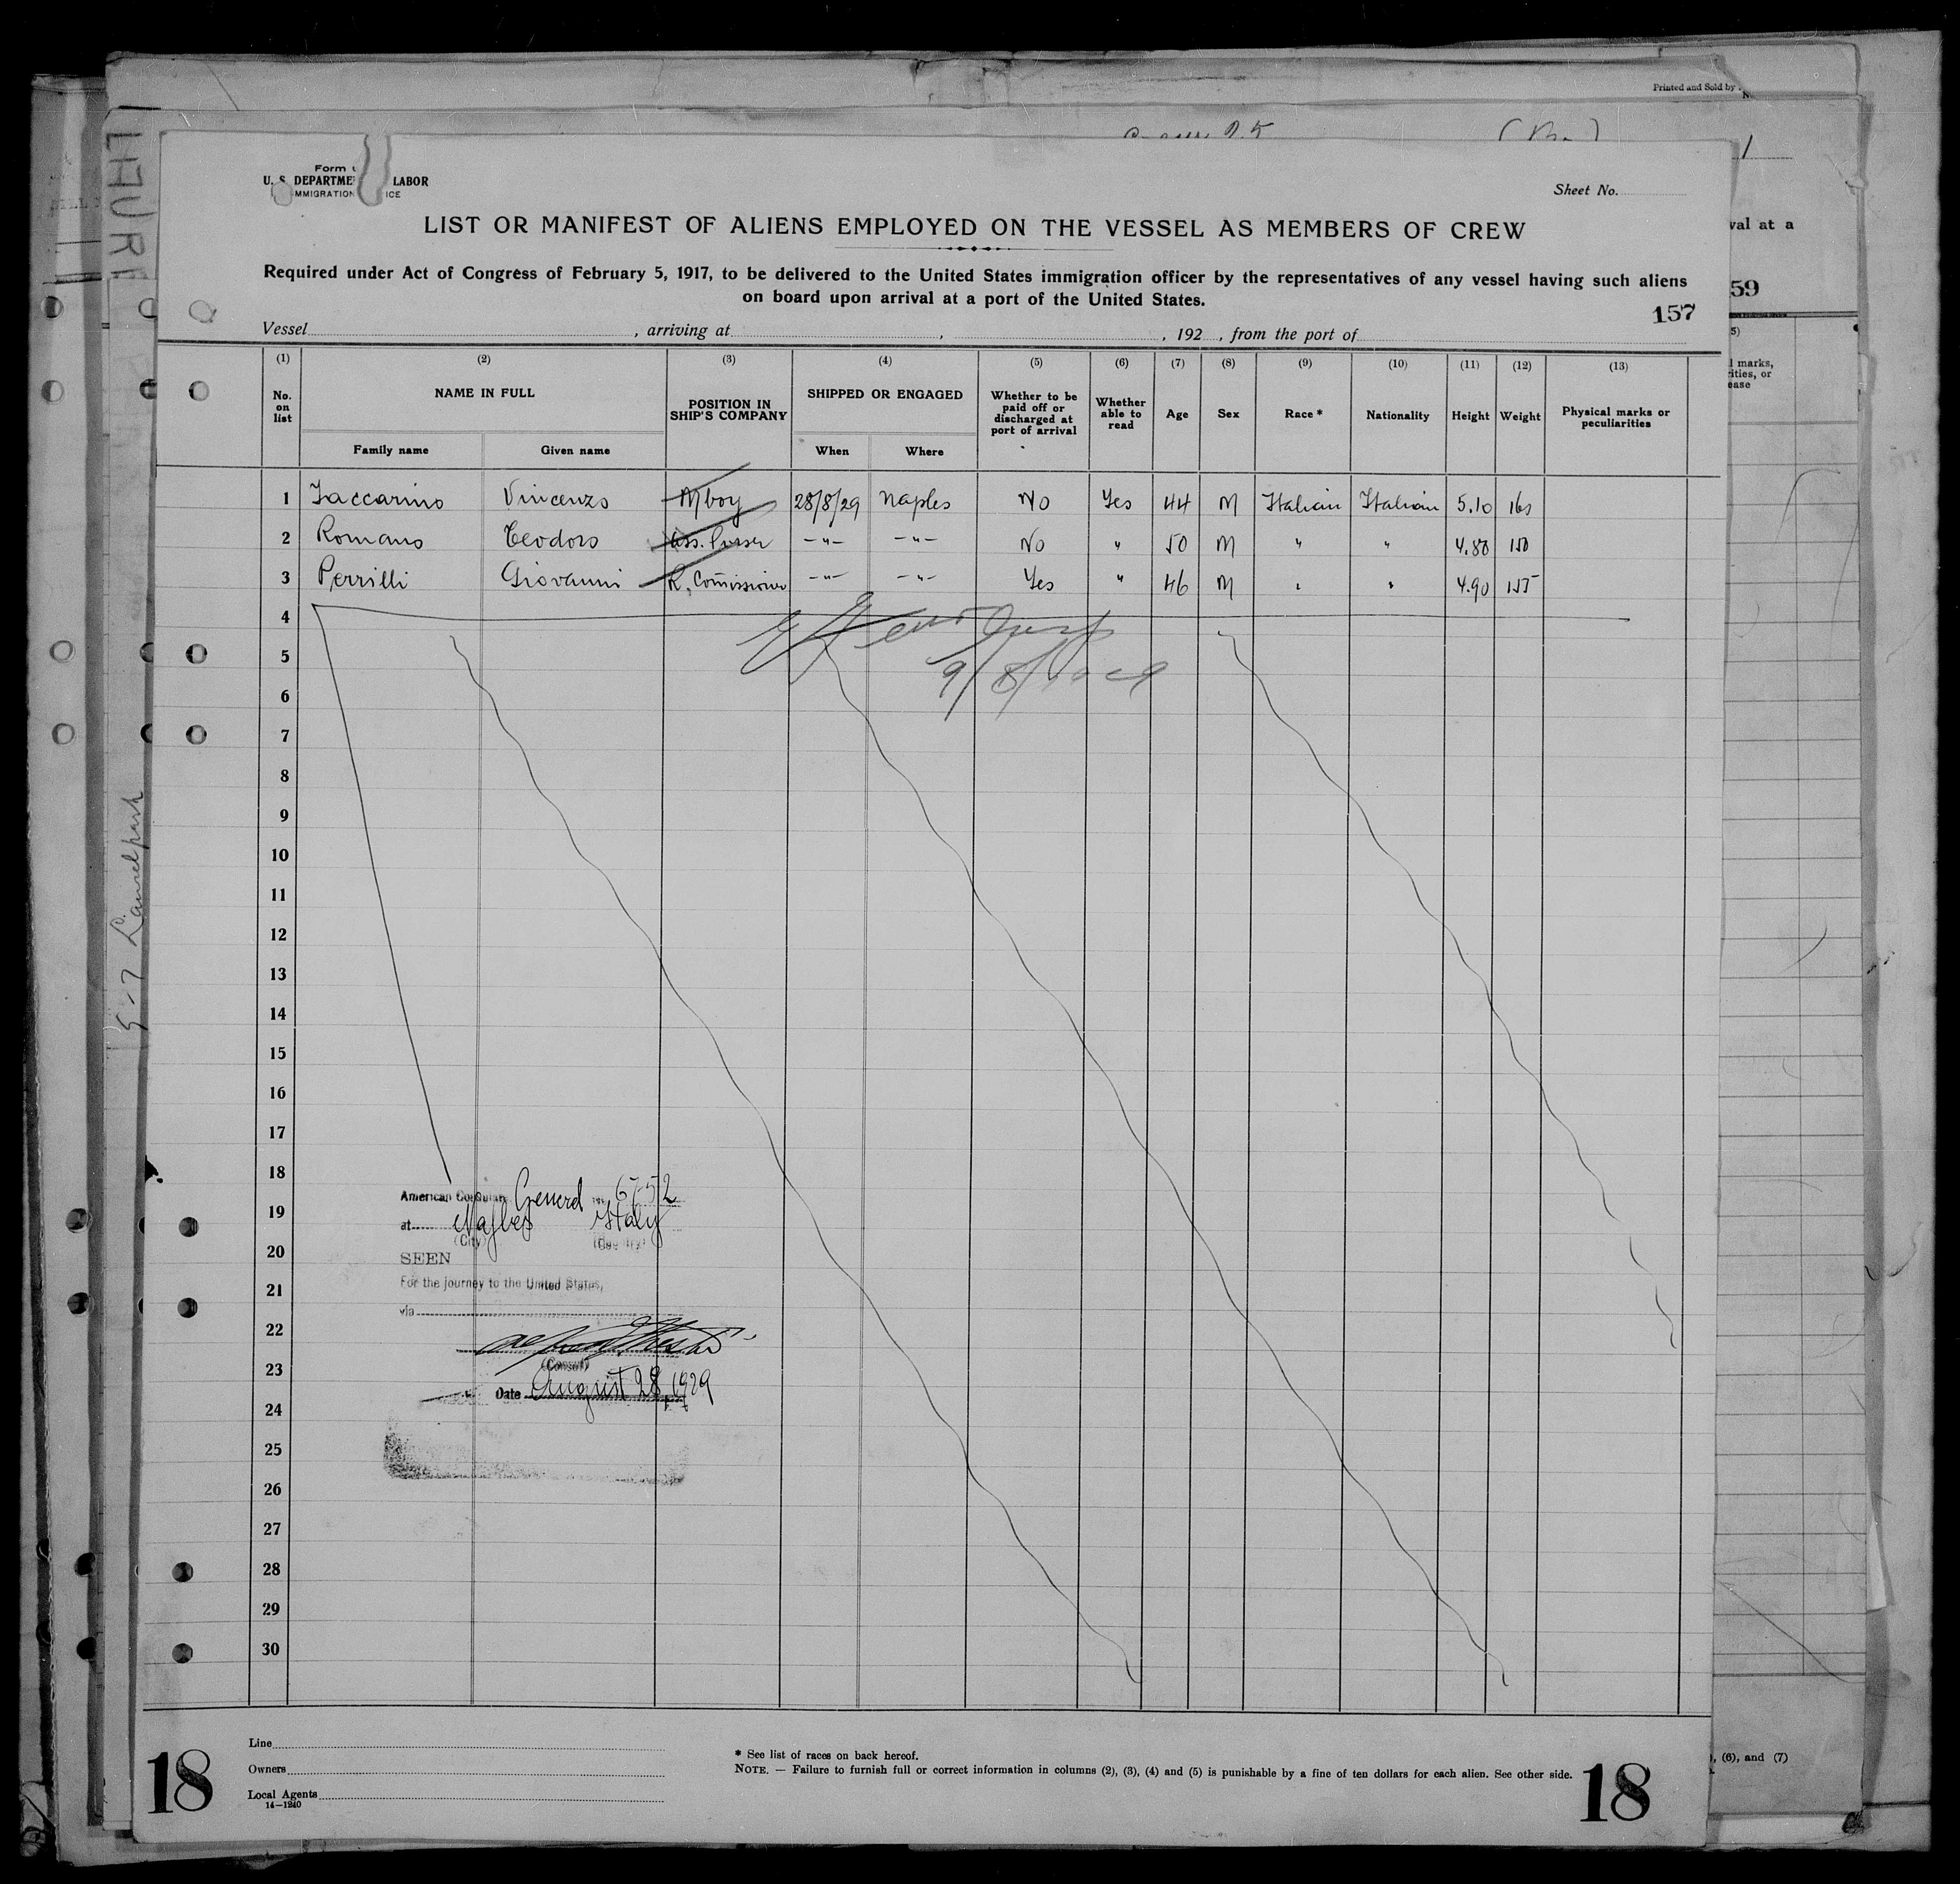 Printed and Sold by
Form
U. S. DEPARTME LABOR
MMIGRATION ICE
Sheet No.
LIST OR MANIFEST OF ALIENS EMPLOYED ON THE VESSEL AS MEMBERS OF CREW
Required under Act of Congress of February 5, 1917, to be delivered to the United States immigration officer by the representatives of any vessel having such aliens
on board upon arrival at a port of the United States.
157
Vessel , arriving at , , 192 , from the port of
(1) (2) (3) (4) (5) (6) (7) (8) (9) (10) (11) (12) (13)
No. on list NAME IN FULL POSITION IN SHIP'S COMPANY SHIPPED OR ENGAGED Whether to be paid off or discharged at port of arrival Whether able to read Age Sex Race * Nationality Height Weight Physical marks or peculiarities
Family name Given name When Where
1 Iaccarino Vincenzo M boy 28/8/29 Naples No Yes 44 M Italian Italian 5.10 160
2 Romano Teodoro Ass. Purser -"- -"- No " 50 M " " 4.80 150
3 Perrilli Giovanni R. Comissioner -"- -"- Yes " 46 M " " 4.90 155
4
5
6
7
8
9
10
11
12
13
14
15
16
17
18
American Consular General No. 6752
19
at Naples Italy
(City) (Country)
20
SEEN
21
For the journey to the United States,
via
22
(Consul)
23
Date August 28 1929
24
25
26
27
28
29
30
Line
Owners
Local Agents
14—1240
* See list of races on back hereof.
NOTE. — Failure to furnish full or correct information in columns (2), (3), (4) and (5) is punishable by a fine of ten dollars for each alien. See other side.
18
18
val at a
59
marks,
ities, or
ease
, (6), and (7)